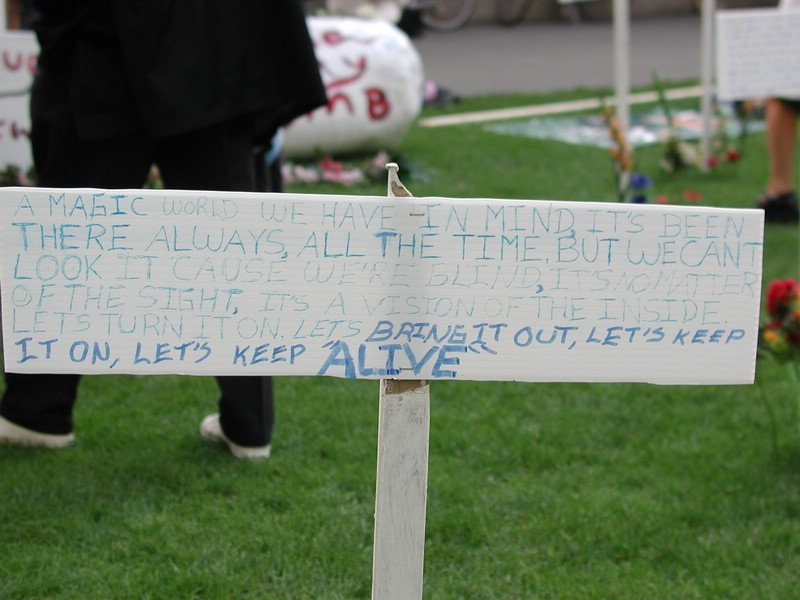 A MAGIC WORLD WE HAVE IN MIND, IT'S BEEN
THERE ALWAYS, ALL THE TIME, BUT WE CANT
LOOK IT CAUSE WE'RE BLIND, IT'S NO MATTER
OF THE SIGHT, IT'S A VISION OF THE INSIDE.
LET'S TURN IT ON, LET'S BRING IT OUT, LET'S KEEP
IT ON, LET'S KEEP "ALIVE"